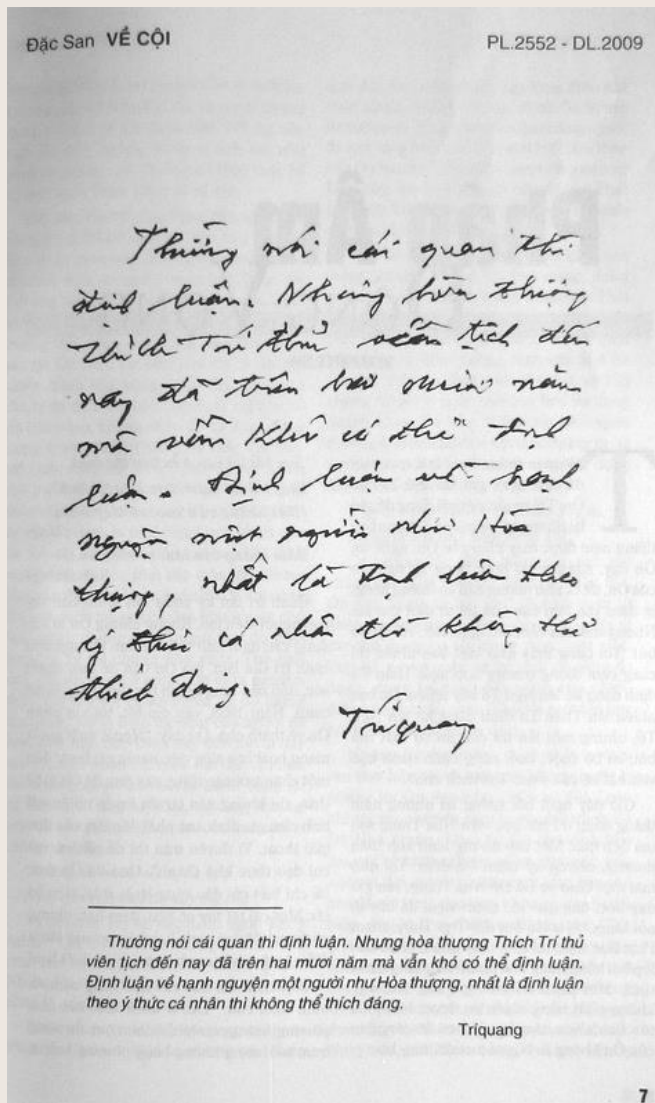 Đặc San VỀ CỘI
PL.2552 - DL.2009
Thường nói cái quan thì
định luận. Nhưng hòa thượng
Thích Trí thủ viên tịch đến
nay đã trên hai mươi năm
mà vẫn khó có thể định
luận. Định luận về hạnh
nguyện một người như Hòa
thượng, nhất là định luận theo
ý thức cá nhân thì không thể
thích đáng.
Tríquang
Thường nói cái quan thì định luận. Nhưng hòa thượng Thích Trí thủ
viên tịch đến nay đã trên hai mươi năm mà vẫn khó có thể định luận.
Định luận về hạnh nguyện một người như Hòa thượng, nhất là định luận
theo ý thức cá nhân thì không thể thích đáng.
Tríquang
7